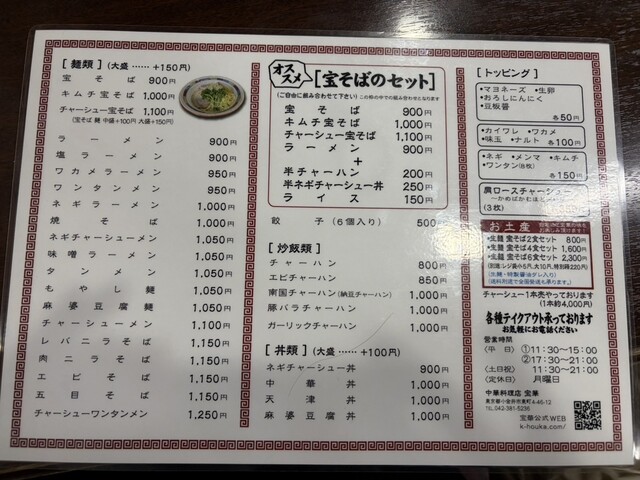 [ 麺類 ] (大盛 …… +150円)
宝そば 900円
キムチ宝そば 1,000円
チャーシュー宝そば 1,100円
(宝そば 麺 中盛+100円 大盛+150円)
ラーメン 900円
塩ラーメン 900円
ワカメラーメン 950円
ワンタンメン 950円
ネギラーメン 1,000円
焼そば 1,000円
ネギチャーシューメン 1,050円
味噌ラーメン 1,050円
タンメン 1,050円
もやし麺 1,050円
麻婆豆腐麺 1,050円
チャーシューメン 1,100円
レバニラそば 1,150円
肉ニラそば 1,150円
エビそば 1,150円
五目そば 1,150円
チャーシューワンタンメン 1,250円
オススメ [宝そばのセット]
(ご自由に組み合わせて下さい) この枠の中での組み合わせとなります
宝そば 900円
キムチ宝そば 1,000円
チャーシュー宝そば 1,100円
ラーメン 900円
+
半チャーハン 200円
半ネギチャーシュー丼 250円
ライス 150円
餃子 (6個入り) 500
[ 炒飯類 ]
チャーハン 800円
エビチャーハン 850円
南国チャーハン (納豆チャーハン) 1,000円
豚バラチャーハン 1,000円
ガーリックチャーハン 1,000円
[ 丼類 ] (大盛 …… +100円)
ネギチャーシュー丼 900円
中華丼 1,000円
天津丼 1,000円
麻婆豆腐丼 1,000円
[ トッピング ]
・マヨネーズ ・生卵
・おろしにんにく
・豆板醤
各50円
・カイワレ ・ワカメ
・味玉 ・ナルト 各100円
・ネギ ・メンマ ・キムチ
・ワンタン(8枚) 各150円
肩ロースチャーシュー
(3枚)
お土産
・生麺 宝そば2食セット 800円
・生麺 宝そば4食セット 1,600円
・生麺 宝そば6食セット 2,300円
チャーシュー1本売やっております
(1本約4,000円)
各種テイクアウト承っております
お気軽にお電話ください
営業時間
(平 日) ①11:30~15:00
②17:30~21:00
(土日祝) 11:30~21:00
(定休日) 月曜日
中華料理店 宝華
東京都小金井市東町4-46-12
TEL 042-381-5236
宝華公式WEB
k-houka.com/